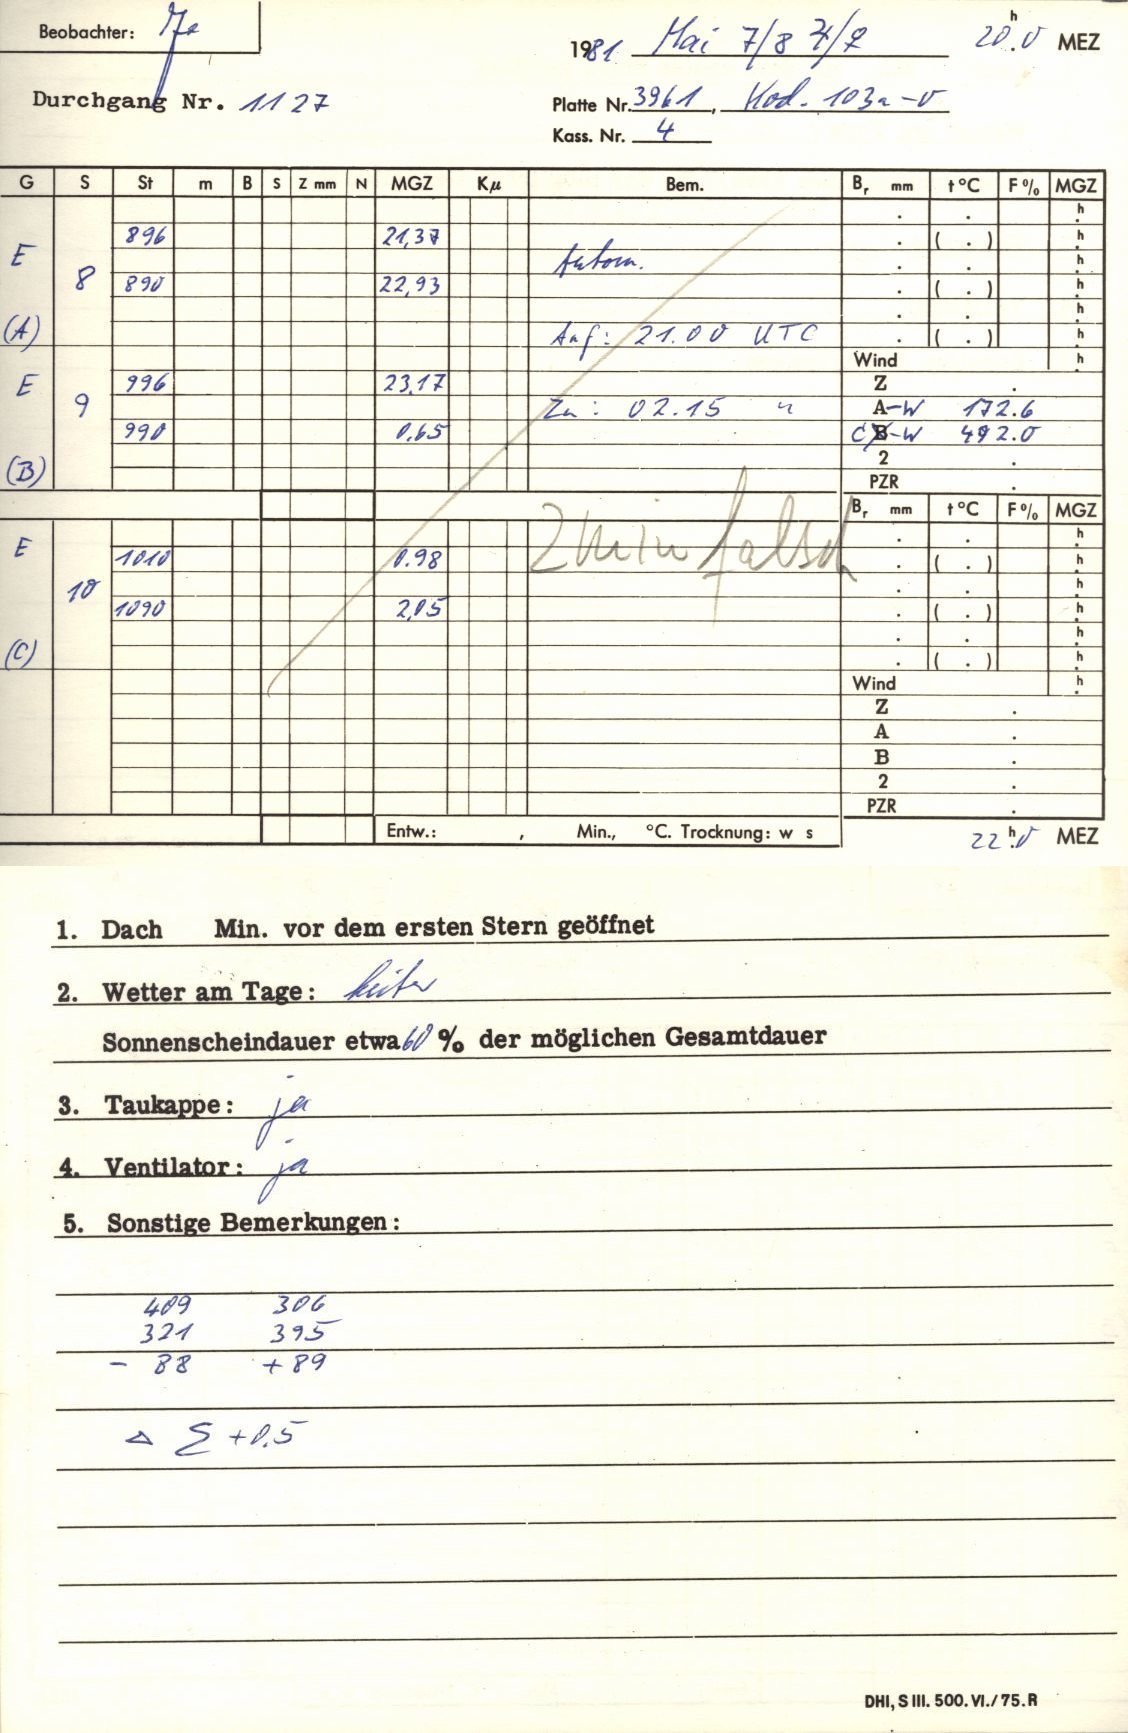 Beobachter:
1981 Mai 7/8 4/2 20h.0 MEZ
Durchgang Nr. 1127
Platte Nr. 3961, Kod. 103a-0
Kass. Nr. 4
G S St m B S Z mm N MGZ Kμ Bem. Br mm t°C F% MGZ
. . h
896 21,37 . ( . ) h
E Autom. . . h
8 890 22,93 . ( . ) h
. . h
(A) Anf: 21.00 UTC . ( . ) h
Wind h
E 996 23,17 Z .
9 Zu: 02.15 " A-W 172.6
990 0,65 C B-W 492.0
(B) 2 .
PZR .
Br mm t°C F% MGZ
E 2 min falsch . . h
1010 0.98 . ( . ) h
10 . . h
1090 2,05 . ( . ) h
. . h
(C) . ( . ) h
Wind h
Z .
A .
B .
2 .
PZR .
Entw.: , Min., °C. Trocknung: w s
22h.0 MEZ
1. Dach Min. vor dem ersten Stern geöffnet
2. Wetter am Tage: heiter
Sonnenscheindauer etwa 60 % der möglichen Gesamtdauer
3. Taukappe: ja
4. Ventilator: ja
5. Sonstige Bemerkungen:
409 306
321 395
- 88 + 89
Δ Σ +0.5
DHI, S III. 500. VI./75. R